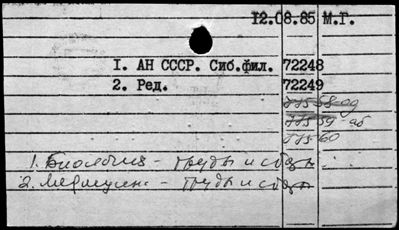 12.08.85 М.Г.
1. АН СССР. Сиб.фил. 72248
2. Ред. 72249
77558-од
77559-аб
77560
1. Биология - труды и сборн.
2. Медицина - труды и сборн.